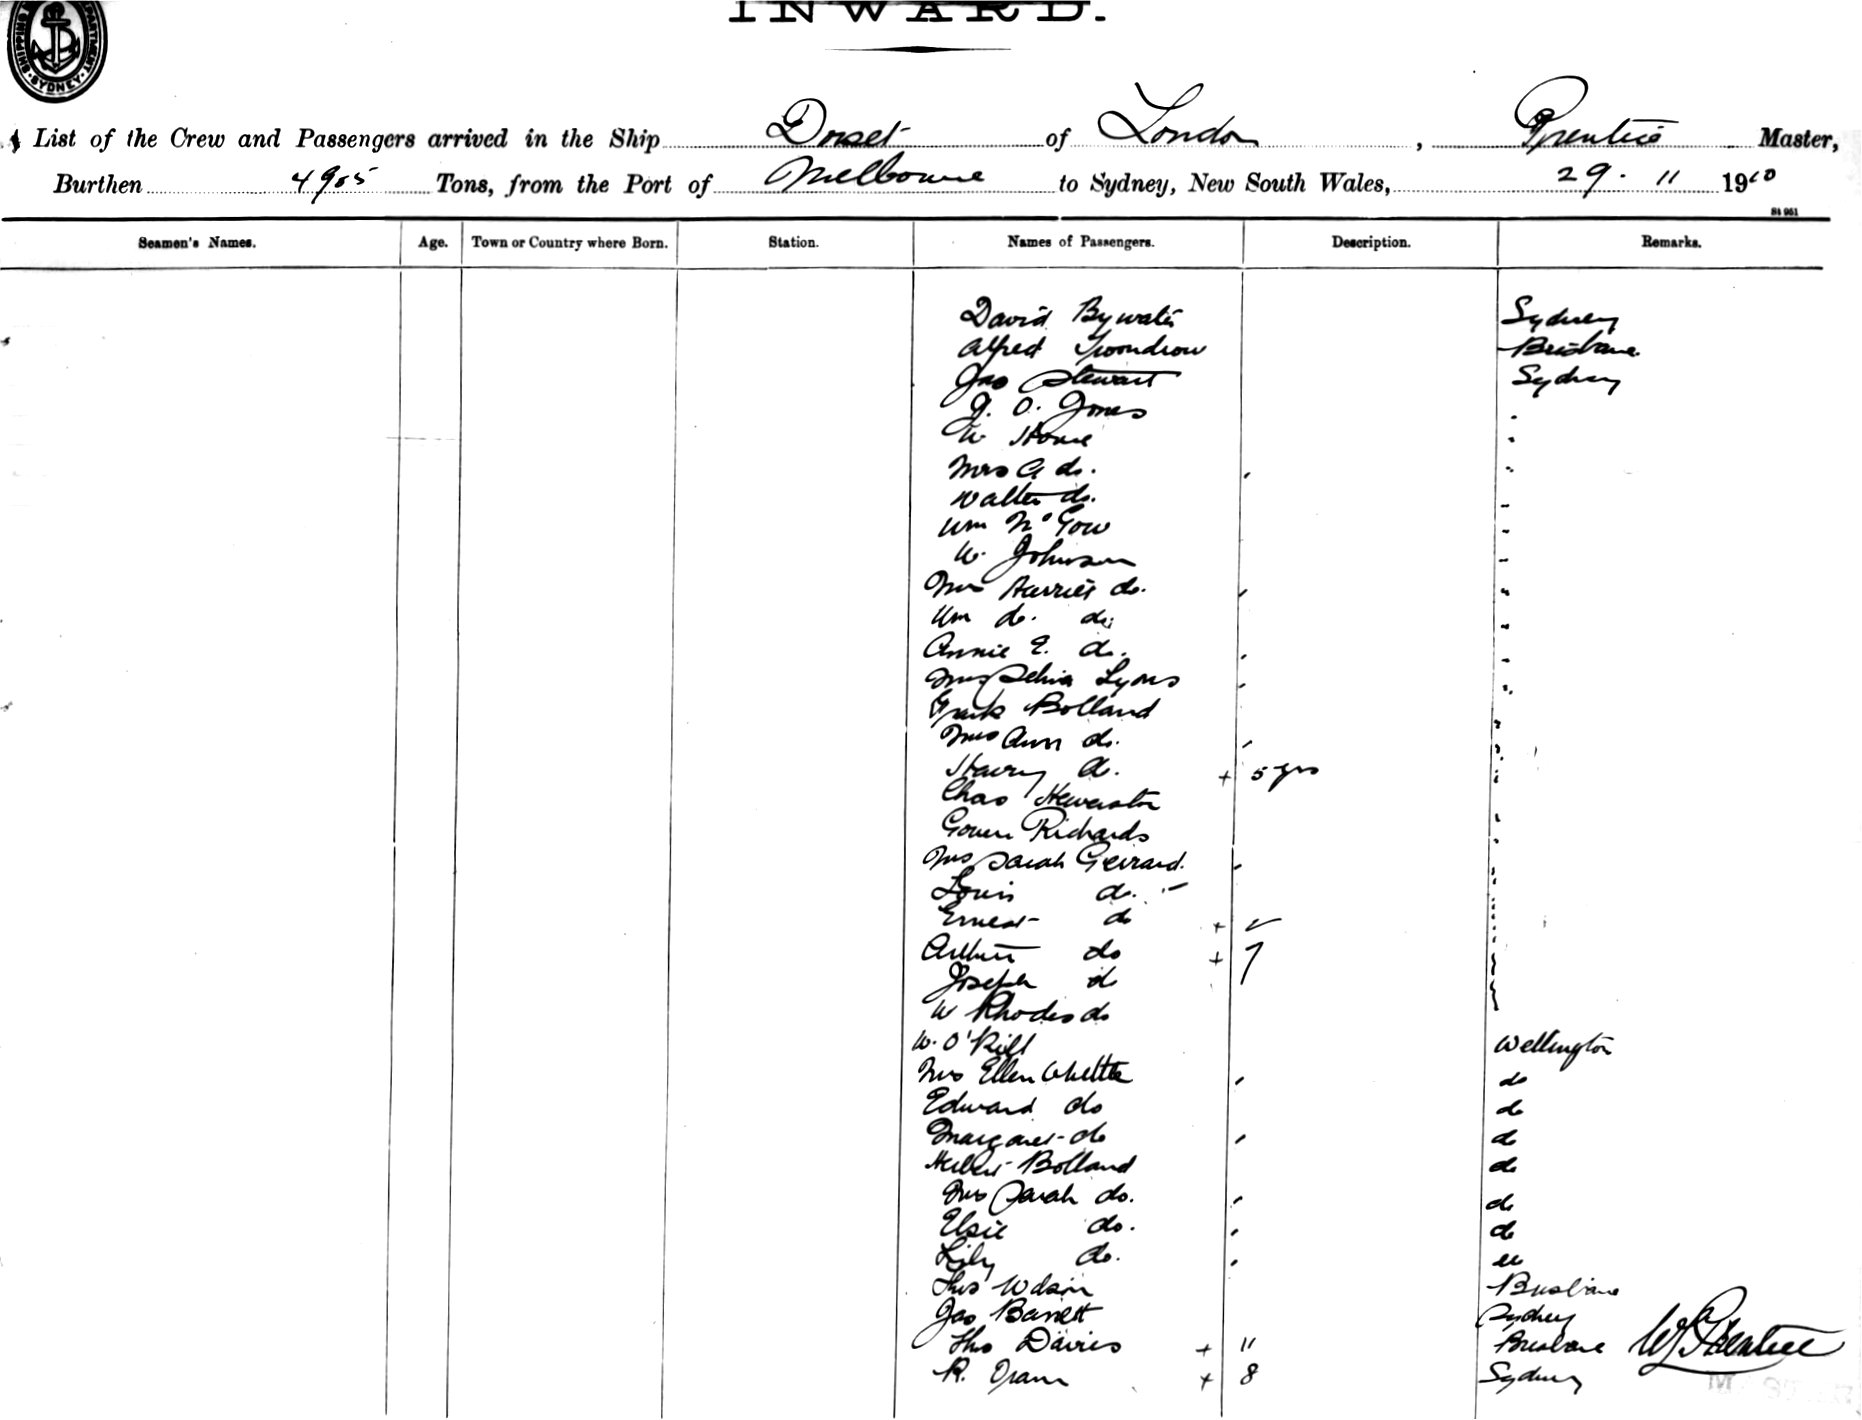 INWARD.
SHIPPING DEPARTMENT SYDNEY
List of the Crew and Passengers arrived in the Ship Dorset of London, Prentice Master,
Burthen 4905 Tons, from the Port of Melbourne to Sydney, New South Wales, 29. 11 1910
Seamen's Names. Age. Town or Country where Born. Station. Names of Passengers. Description. Remarks.
David Bywater Sydney
Alfred Brisbane
Jas Stewart Sydney
J. O. Jones "
W Howe "
Mrs A do. "
Walter do. "
Wm McGow "
W. Johnson "
Mrs Harriet do. "
Wm do. do. "
Annie E. do. "
Mrs Selina Lyons "
Frank Bolland "
Mrs Ann do. "
Harry do. + 5 yrs "
Chas "
Richards "
Mrs Sarah Gerrard. "
Louis do. "
Ernest do + "
Arthur do + 7 "
Joseph do "
W Rhodes do "
W. O' Wellington
Mrs Ellen do
Edward do do
Margaret do do
Bolland do
Mrs Sarah do. do
Elsie do. do
Lily do. do
Thos Wilson Brisbane
Jas Barrett Sydney
Tho Davies + 11 Brisbane W Prentice
R. Oram + 8 Sydney